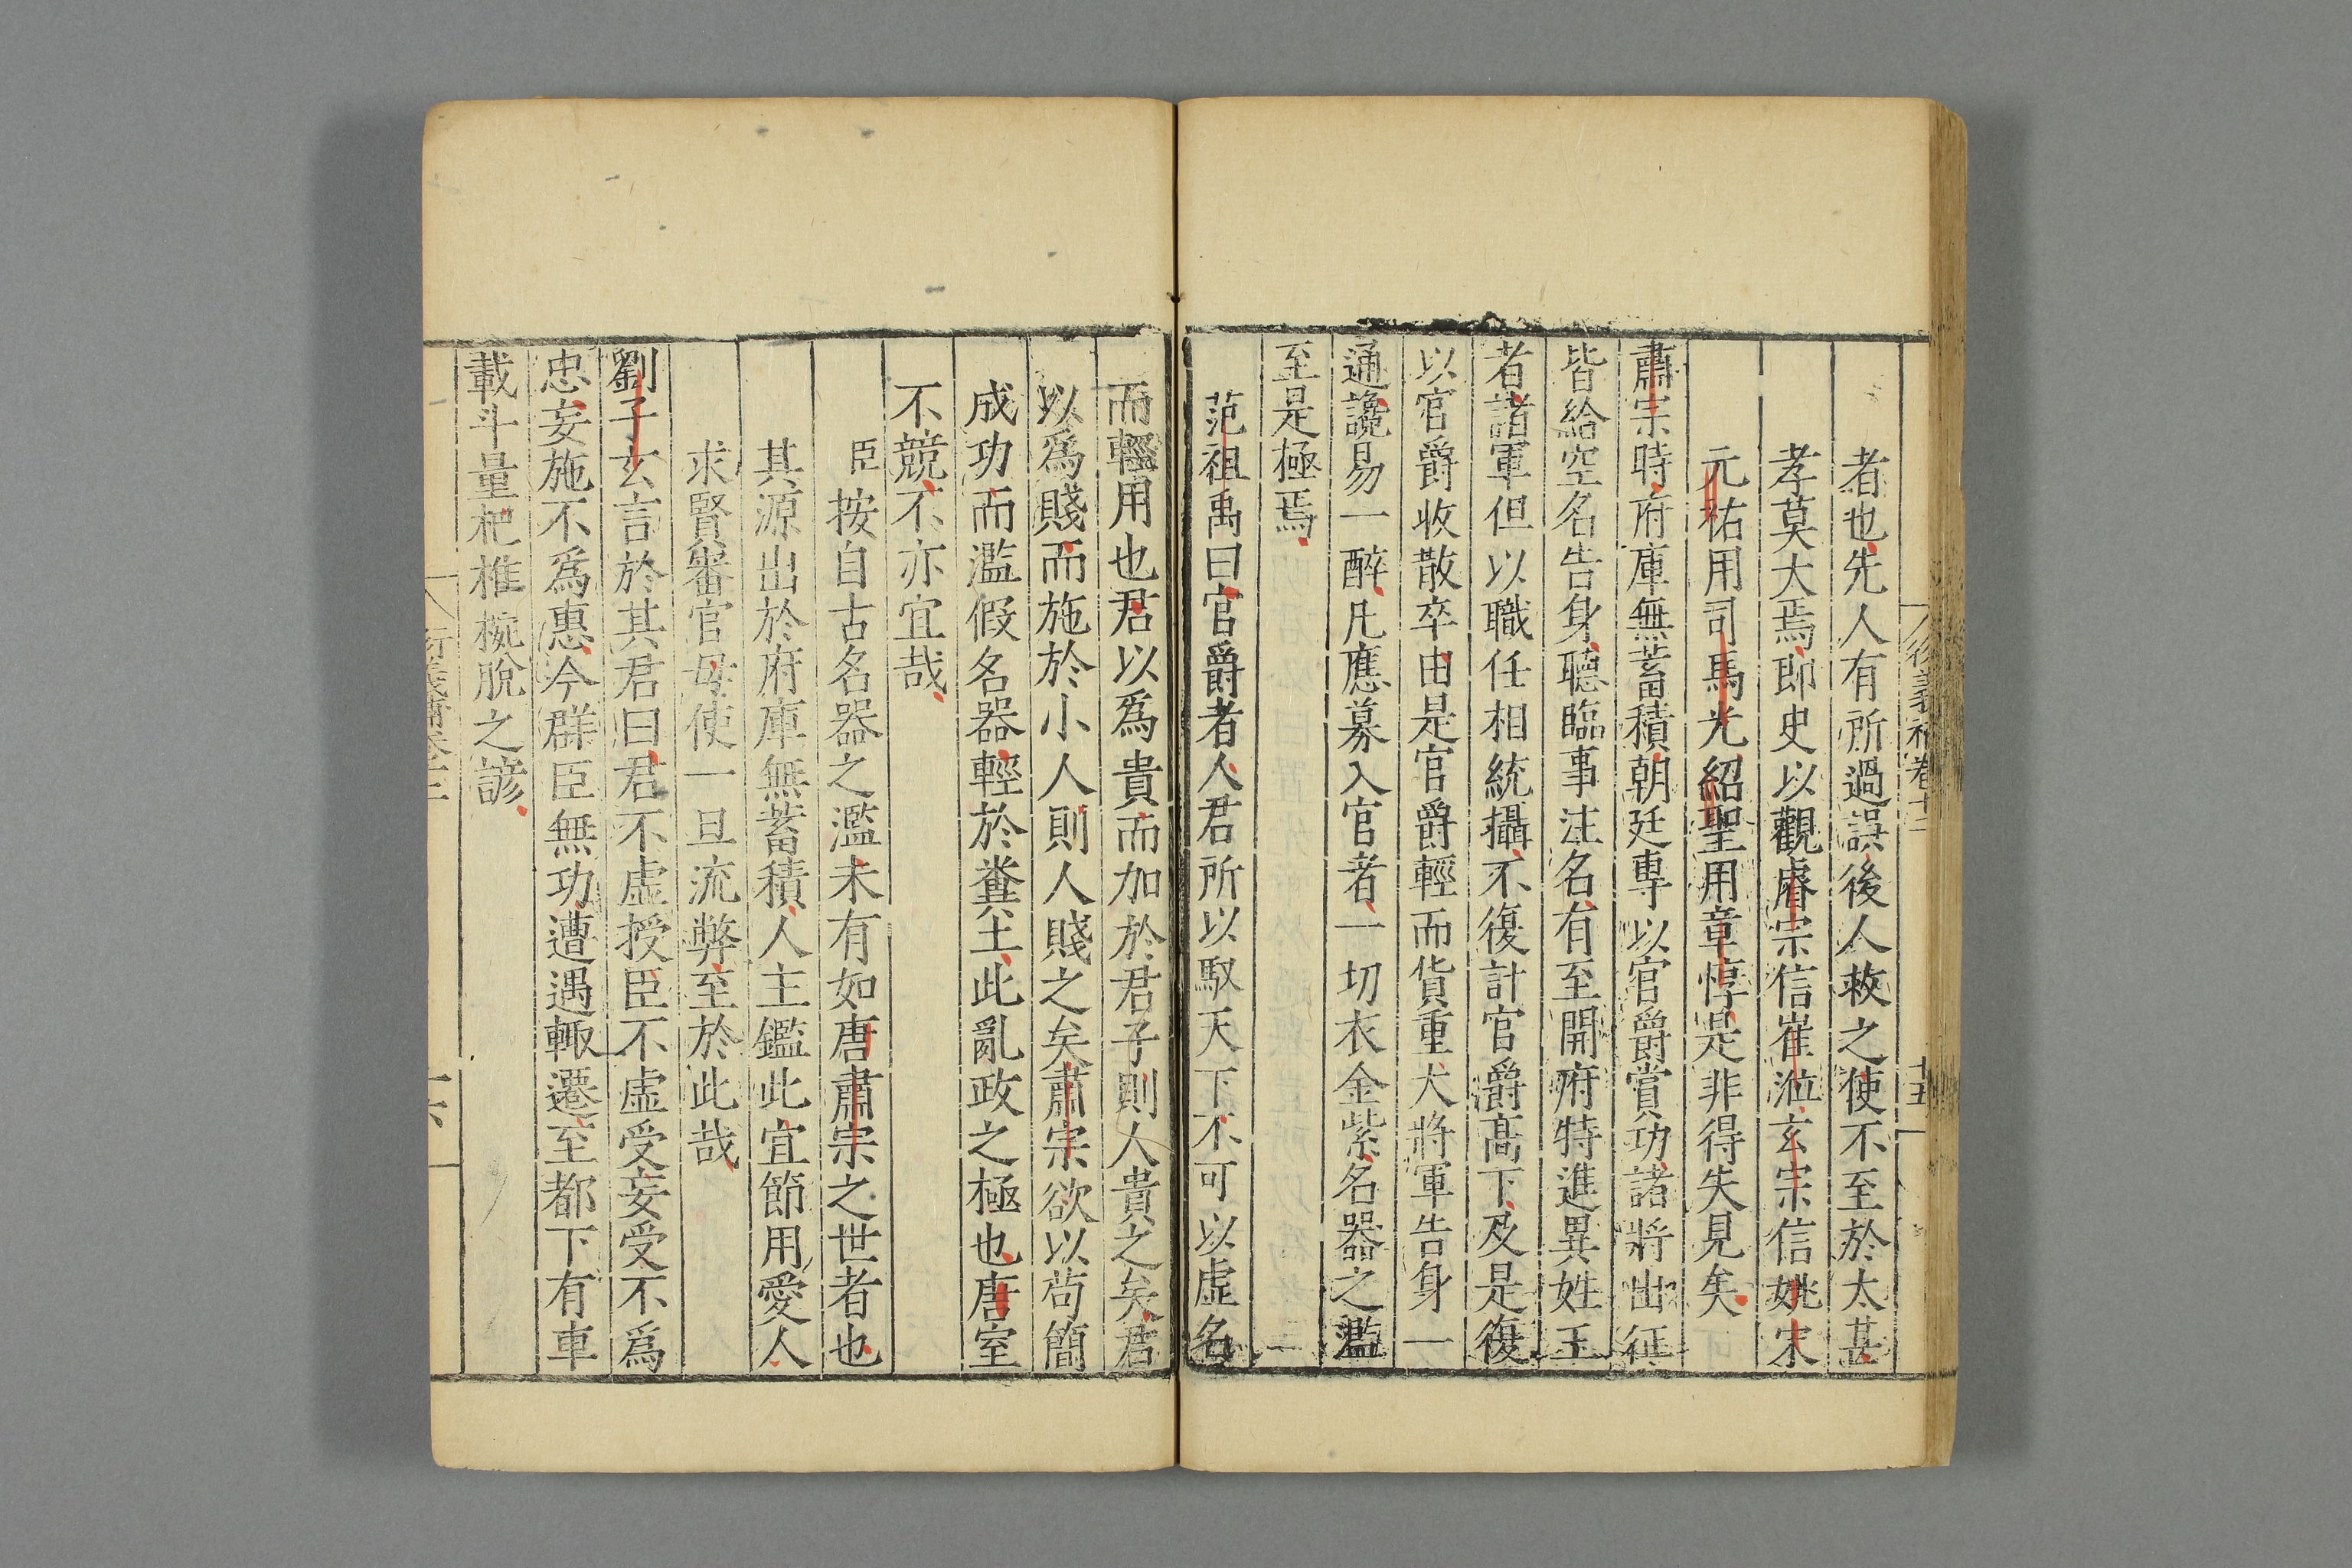 者也先人有所過誤後人救之使不至於太甚
孝莫大焉即史以觀睿宗信崔湜玄宗信姚宋
元祐用司馬光紹聖用章惇是非得失見矣
肅宗時府庫無蓄積朝廷專以官爵賞功諸將出征
皆給空名告身聽臨事注名有至開府特進異姓王
者諸軍但以職任相統攝不復計官爵高下及是復
以官爵收散卒由是官爵輕而貨重大將軍告身一
通讒易一醉凡應募入官者一切衣金紫名器之濫
至是極焉
范祖禹曰官爵者人君所以馭天下不可以虛名
而輕用也君以爲貴而加於君子則人貴之矣君
以爲賤而施於小人則人賤之矣肅宗欲以苟簡
成功而濫假名器輕於糞土此亂政之極也唐室
不競不亦宜哉
臣按自古名器之濫未有如唐肅宗之世者也
其源出於府庫無蓄積人主鑑此宜節用愛人
求賢審官毋使一旦流弊至於此哉
劉子玄言於其君曰君不虛授臣不虛受妄受不爲
忠妄施不爲惠今群臣無功遭遇輒遷至都下有車
載斗量杷椎椀脫之諺